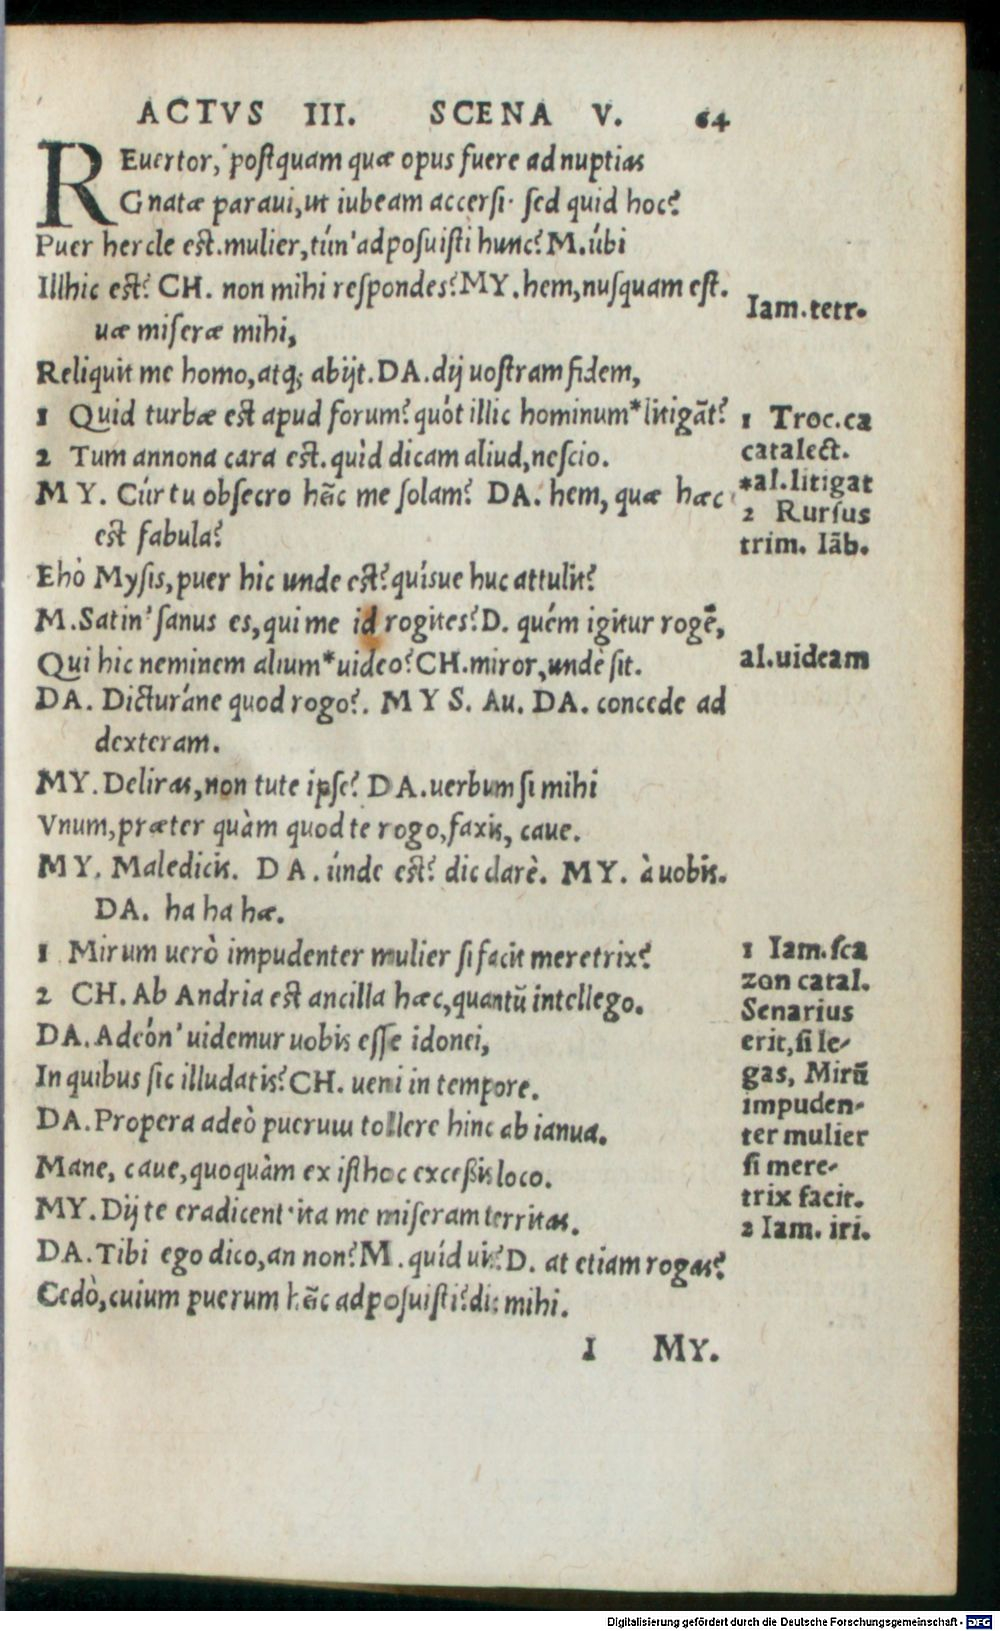 ACTVS III. SCENA V. 64
REuertor, postquam quæ opus fuere ad nuptias
Gnatæ paraui, ut iubeam accersi· sed quid hoc?
Puer hercle est. mulier, tún' adposuisti hunc? M. úbi
Illhic est? CH. non mihi respondes? MY. hem, nusquam est.
uæ miseræ mihi,
Reliquit me homo, atq; abijt. DA. dij uostram fidem,
1 Quid turbæ est apud forum? quót illic hominum*litigāt?
2 Tum annona cara est. quìd dicam aliud, nescio.
MY. Cúr tu obsecro hēic me solam? DA. hem, quæ hæc
est fabula?
Ehò Mysis, puer hic unde est? quísue huc attulit?
M. Satin' sanus es, qui me id rogites? D. quém igitur rogē,
Qui hic neminem alium*uideo? CH. miror, undè sit.
DA. Dictur'áne quod rogo?. MYS. Au. DA. concede ad
dexteram.
MY. Deliras, non tute ipse? DA. uerbum si mihi
Vnum, præter quàm quod te rogo, faxis, caue.
MY. Maledicis. DA. únde est? dic clarè. MY. à uobis.
DA. ha ha hæ.
1 Mirum uerò impudenter mulier si facit meretrix?
2 CH. Ab Andria est ancilla hæc, quantū intellego.
DA. Adeón' uidemur uobis esse idonei,
In quibus sic illudatis? CH. ueni in tempore.
DA. Propera adeò puerum tollere hinc ab ianua.
Mane, caue, quoquàm ex isthoc exceßis loco.
MY. Dij te eradicent· ita me miseram territas.
DA. Tibi ego dico, an non? M. quíd uis? D. at etiam rogas?
Cedò, cuium puerum hēic adposuisti? dic mihi.
I MY.
Iam. tetr.
1 Troc. ca
catalect.
*al. litigat
2 Rursus
trim. Iāb.
al. uideam
1 Iam. sca
zon catal.
Senarius
erit, si le-
gas, Mirū
impuden-
ter mulier
si mere-
trix facit.
2 Iam. iri.
Digitalisierung gefördert durch die Deutsche Forschungsgemeinschaft - DFG